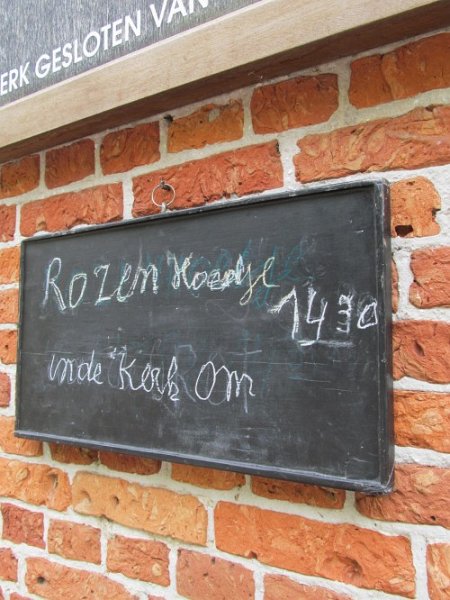 ERK GESLOTEN VAN
Rozen Hoedje
14 30
in de Kerk Om